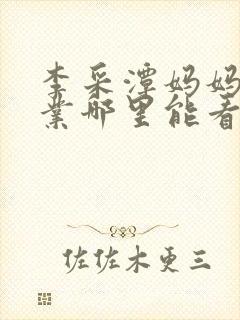 李采潭妈妈
业哪里能看
佐佐木更三